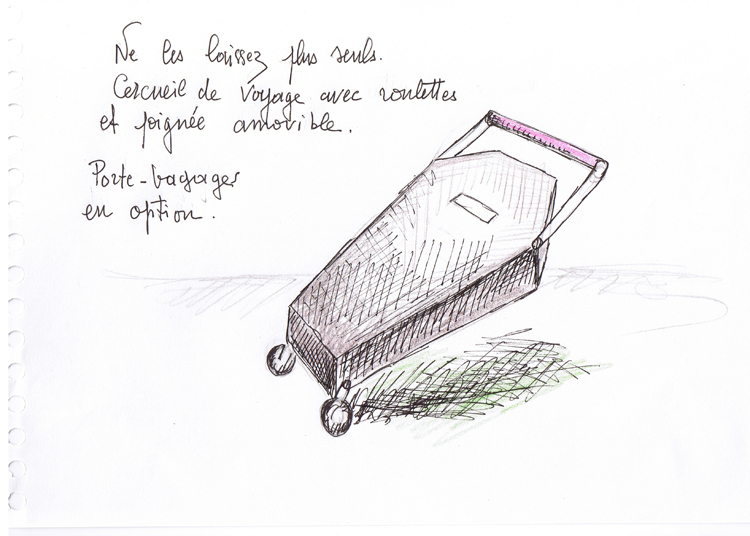 Ne les laissez plus seuls.
Cercueil de voyage avec roulettes
et poignée amovible.
Porte-bagages
en option.